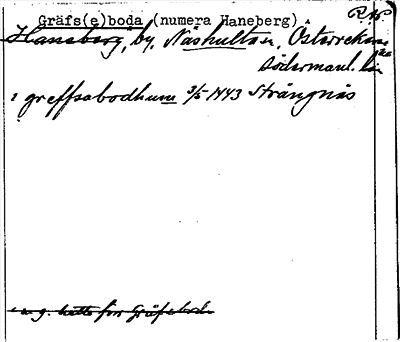 Gräfs(e)boda (numera Haneberg)
Haneberg, by, Näshulta sn, Österrekarne
Södermanl. län
i greffsabodhum 3/5 1443 Strängnäs
g. hette förr Gräfsboda